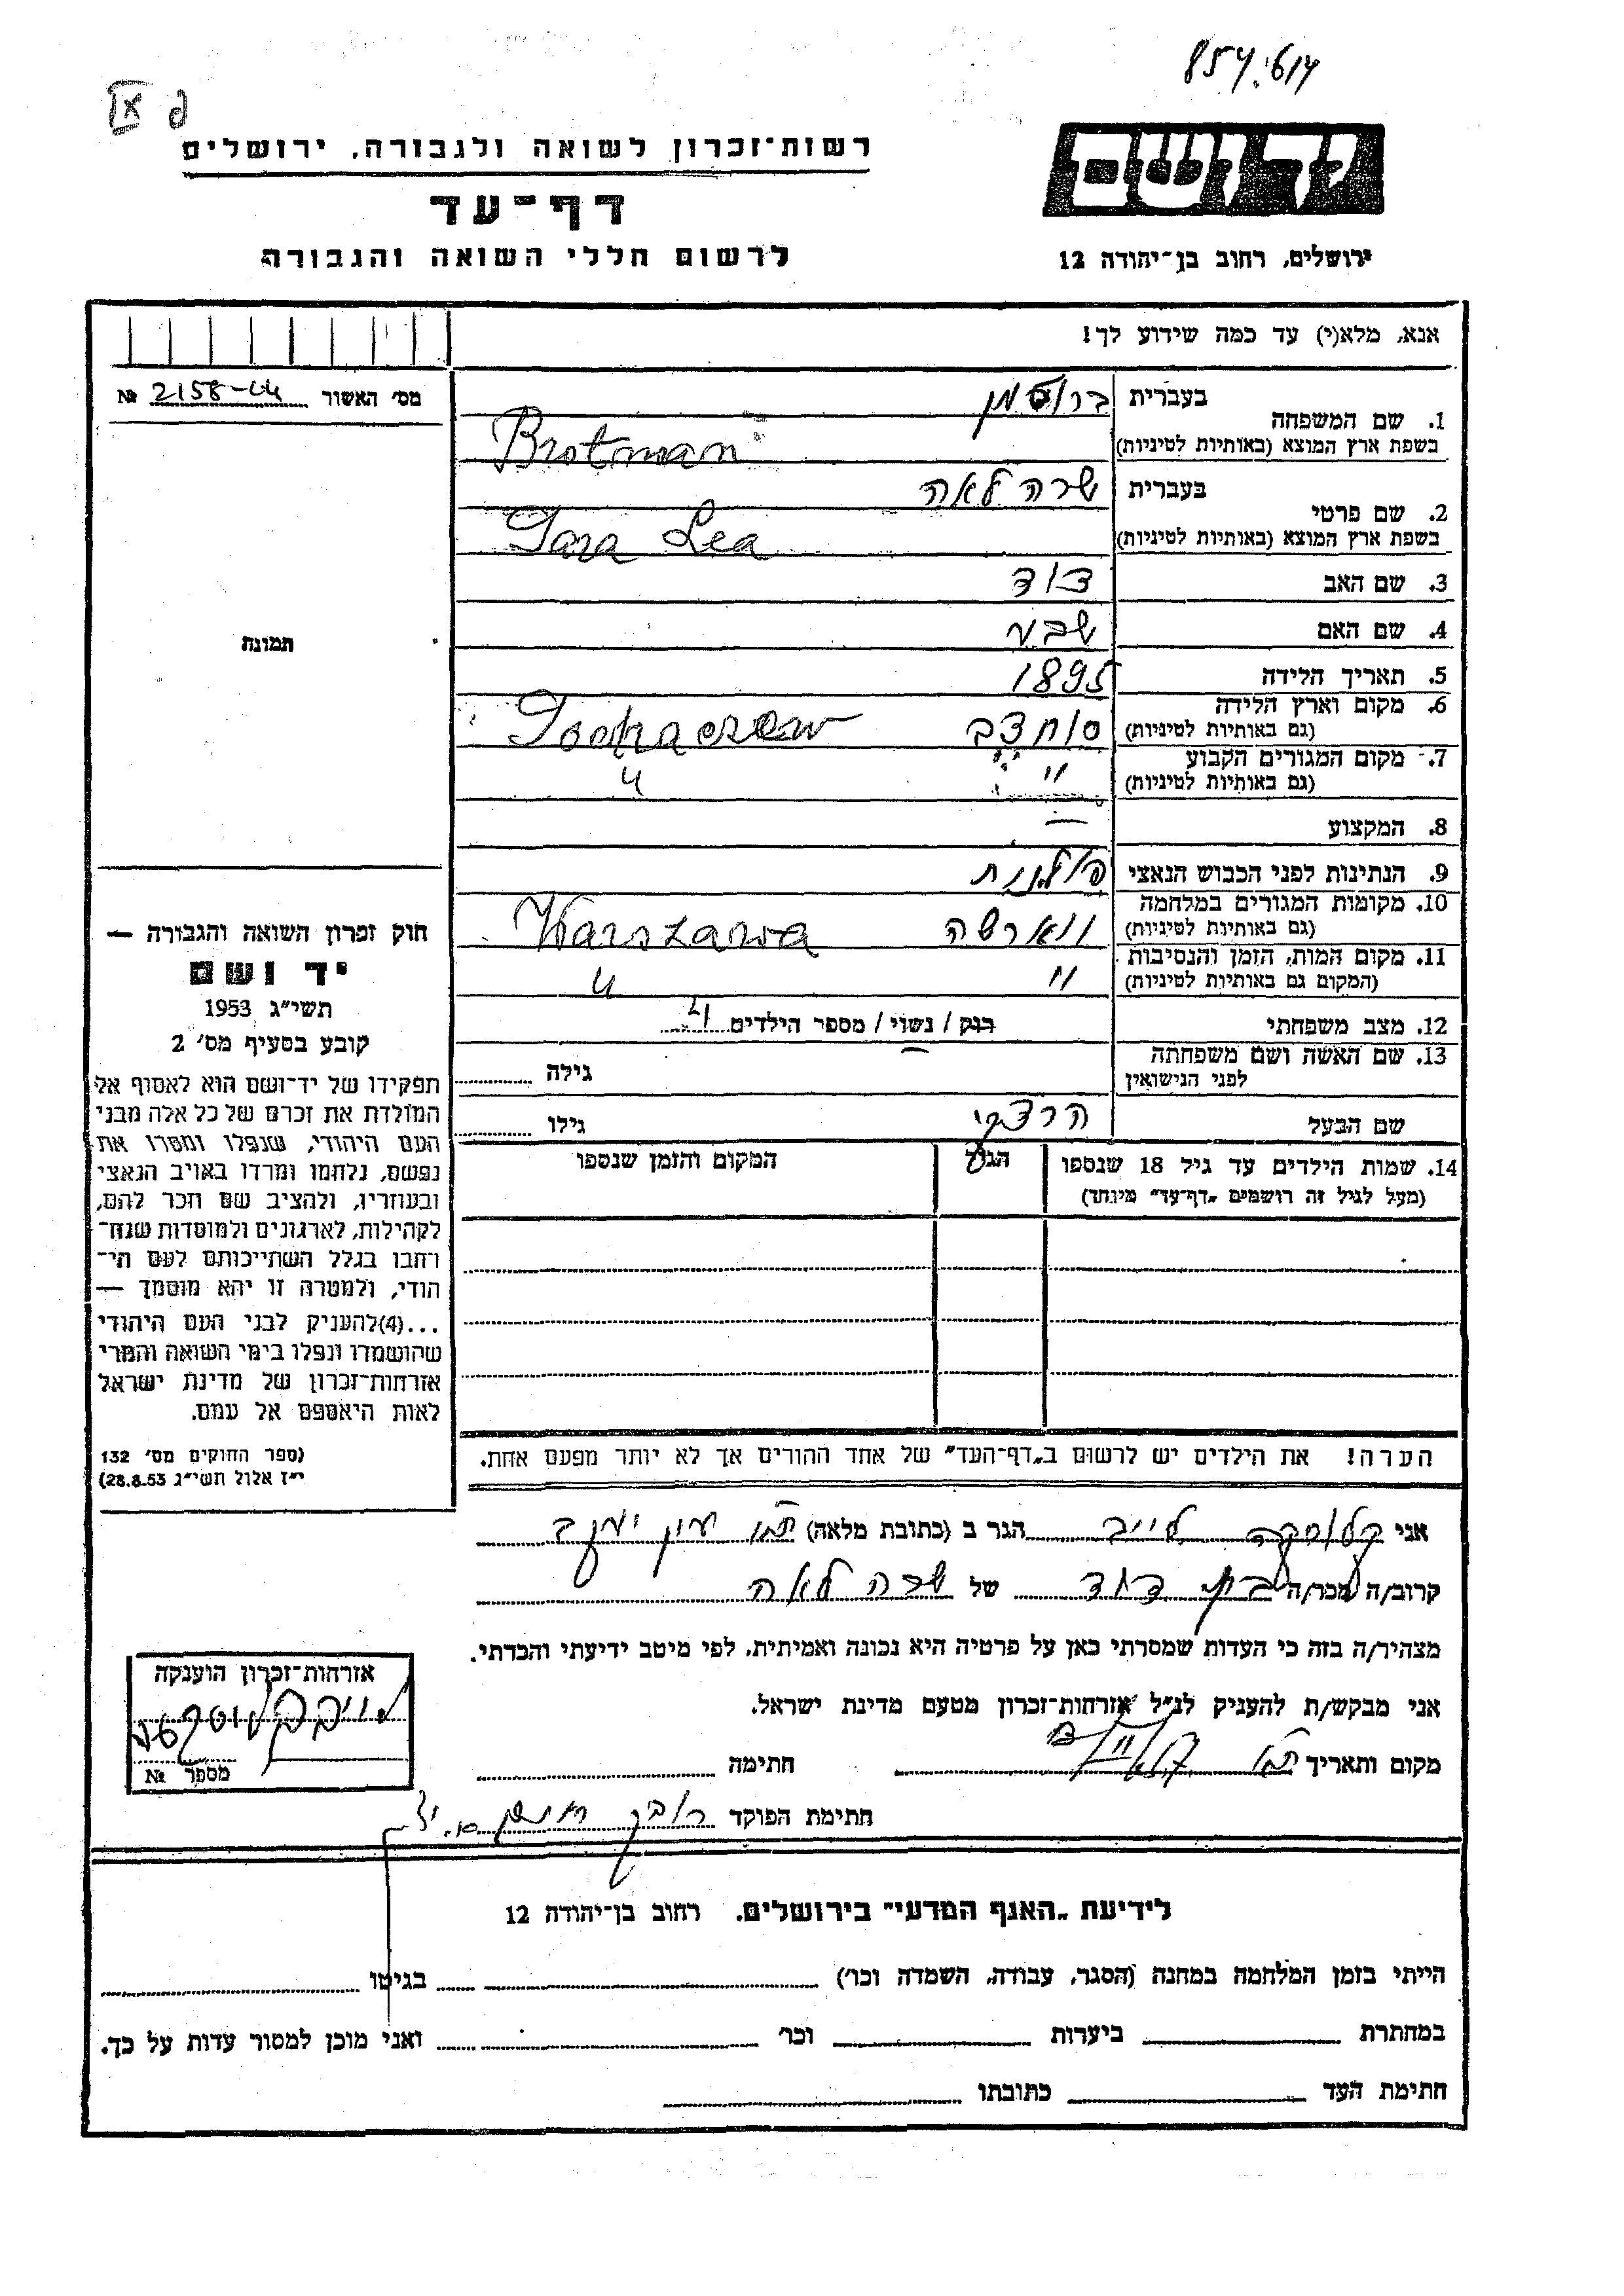 854.614
רשות־זכרון לשואה ולגבורה, ירושלים
דף־עד
לרשום חללי השואה והגבורה
ידושם
ירושלים, רחוב בן־יהודה 12
אנא, מלא(י) עד כמה שידוע לך!
מס' האשור № 2158-44
1. שם המשפחה
בעברית ברוטמן
בשפת ארץ המוצא (באותיות לטיניות) Brotman
2. שם פרטי
בעברית שרה לאה
בשפת ארץ המוצא (באותיות לטיניות) Sara Lea
3. שם האב דוד
4. שם האם שבע
5. תאריך הלידה 1895
6. מקום וארץ הלידה
(גם באותיות לטיניות) סוחצב Sochaczew
7. מקום המגורים הקבוע
(גם באותיות לטיניות) " "
8. המקצוע —
9. הנתינות לפני הכבוש הנאצי פולנית
10. מקומות המגורים במלחמה
(גם באותיות לטיניות) ווארשה Warszawa
11. מקום המות, הזמן והנסיבות
(המקום גם באותיות לטיניות) " "
12. מצב משפחתי רווק / נשוי / מספר הילדים 4
13. שם האשה ושם משפחתה
לפני הנישואין — גילה
שם הבעל הרצקי גילו
14. שמות הילדים עד גיל 18 שנספו
(מעל לגיל זה רושמים „דף־עד" מיוחד)
הגיל
המקום והזמן שנספו
הערה! את הילדים יש לרשום ב„דף־העד" של אחד ההורים אך לא יותר מפעם אחת.
תמונה
חוק זכרון השואה והגבורה —
יד ושם
תשי"ג 1953
קובע בסעיף מס' 2
תפקידו של יד־ושם הוא לאסוף אל
המולדת את זכרם של כל אלה מבני
העם היהודי, שנפלו ומסרו את
נפשם, נלחמו ומרדו באויב הנאצי
ובעוזריו, ולהציב שם וזכר להם,
לקהילות, לארגונים ולמוסדות שנח־
רחבו בגלל השתייכותם לעם הי־
הודי, ולמטרה זו יהא מוסמך —
...(4)להעניק לבני העם היהודי
שהושמדו ונפלו בימי השואה והמרי
אזרחות־זכרון של מדינת ישראל
לאות היאספם אל עמם.
(ספר החוקים מס' 132
י"ז אלול תשי"ג 28.8.53)
אני לייב הגר ב (כתובת מלאה) עין יעקב
קרוב/ה מכר/ה דוד של שרה לאה
מצהיר/ה בזה כי העדות שמסרתי כאן על פרטיה היא נכונה ואמיתית, לפי מיטב ידיעתי והכרתי.
אני מבקש/ת להעניק לנ"ל אזרחות־זכרון מטעם מדינת ישראל.
מקום ותאריך חתימה
חתימת הפוקד
אזרחות־זכרון הוענקה
מספר №
לידיעת „האגף המדעי" בירושלים. רחוב בן־יהודה 12
הייתי בזמן המלחמה במחנה (הסגר, עבודה, השמדה וכו') בגיטו
במחתרת ביערות וכו' ואני מוכן למסור עדות על כך.
חתימת העד כתובתו